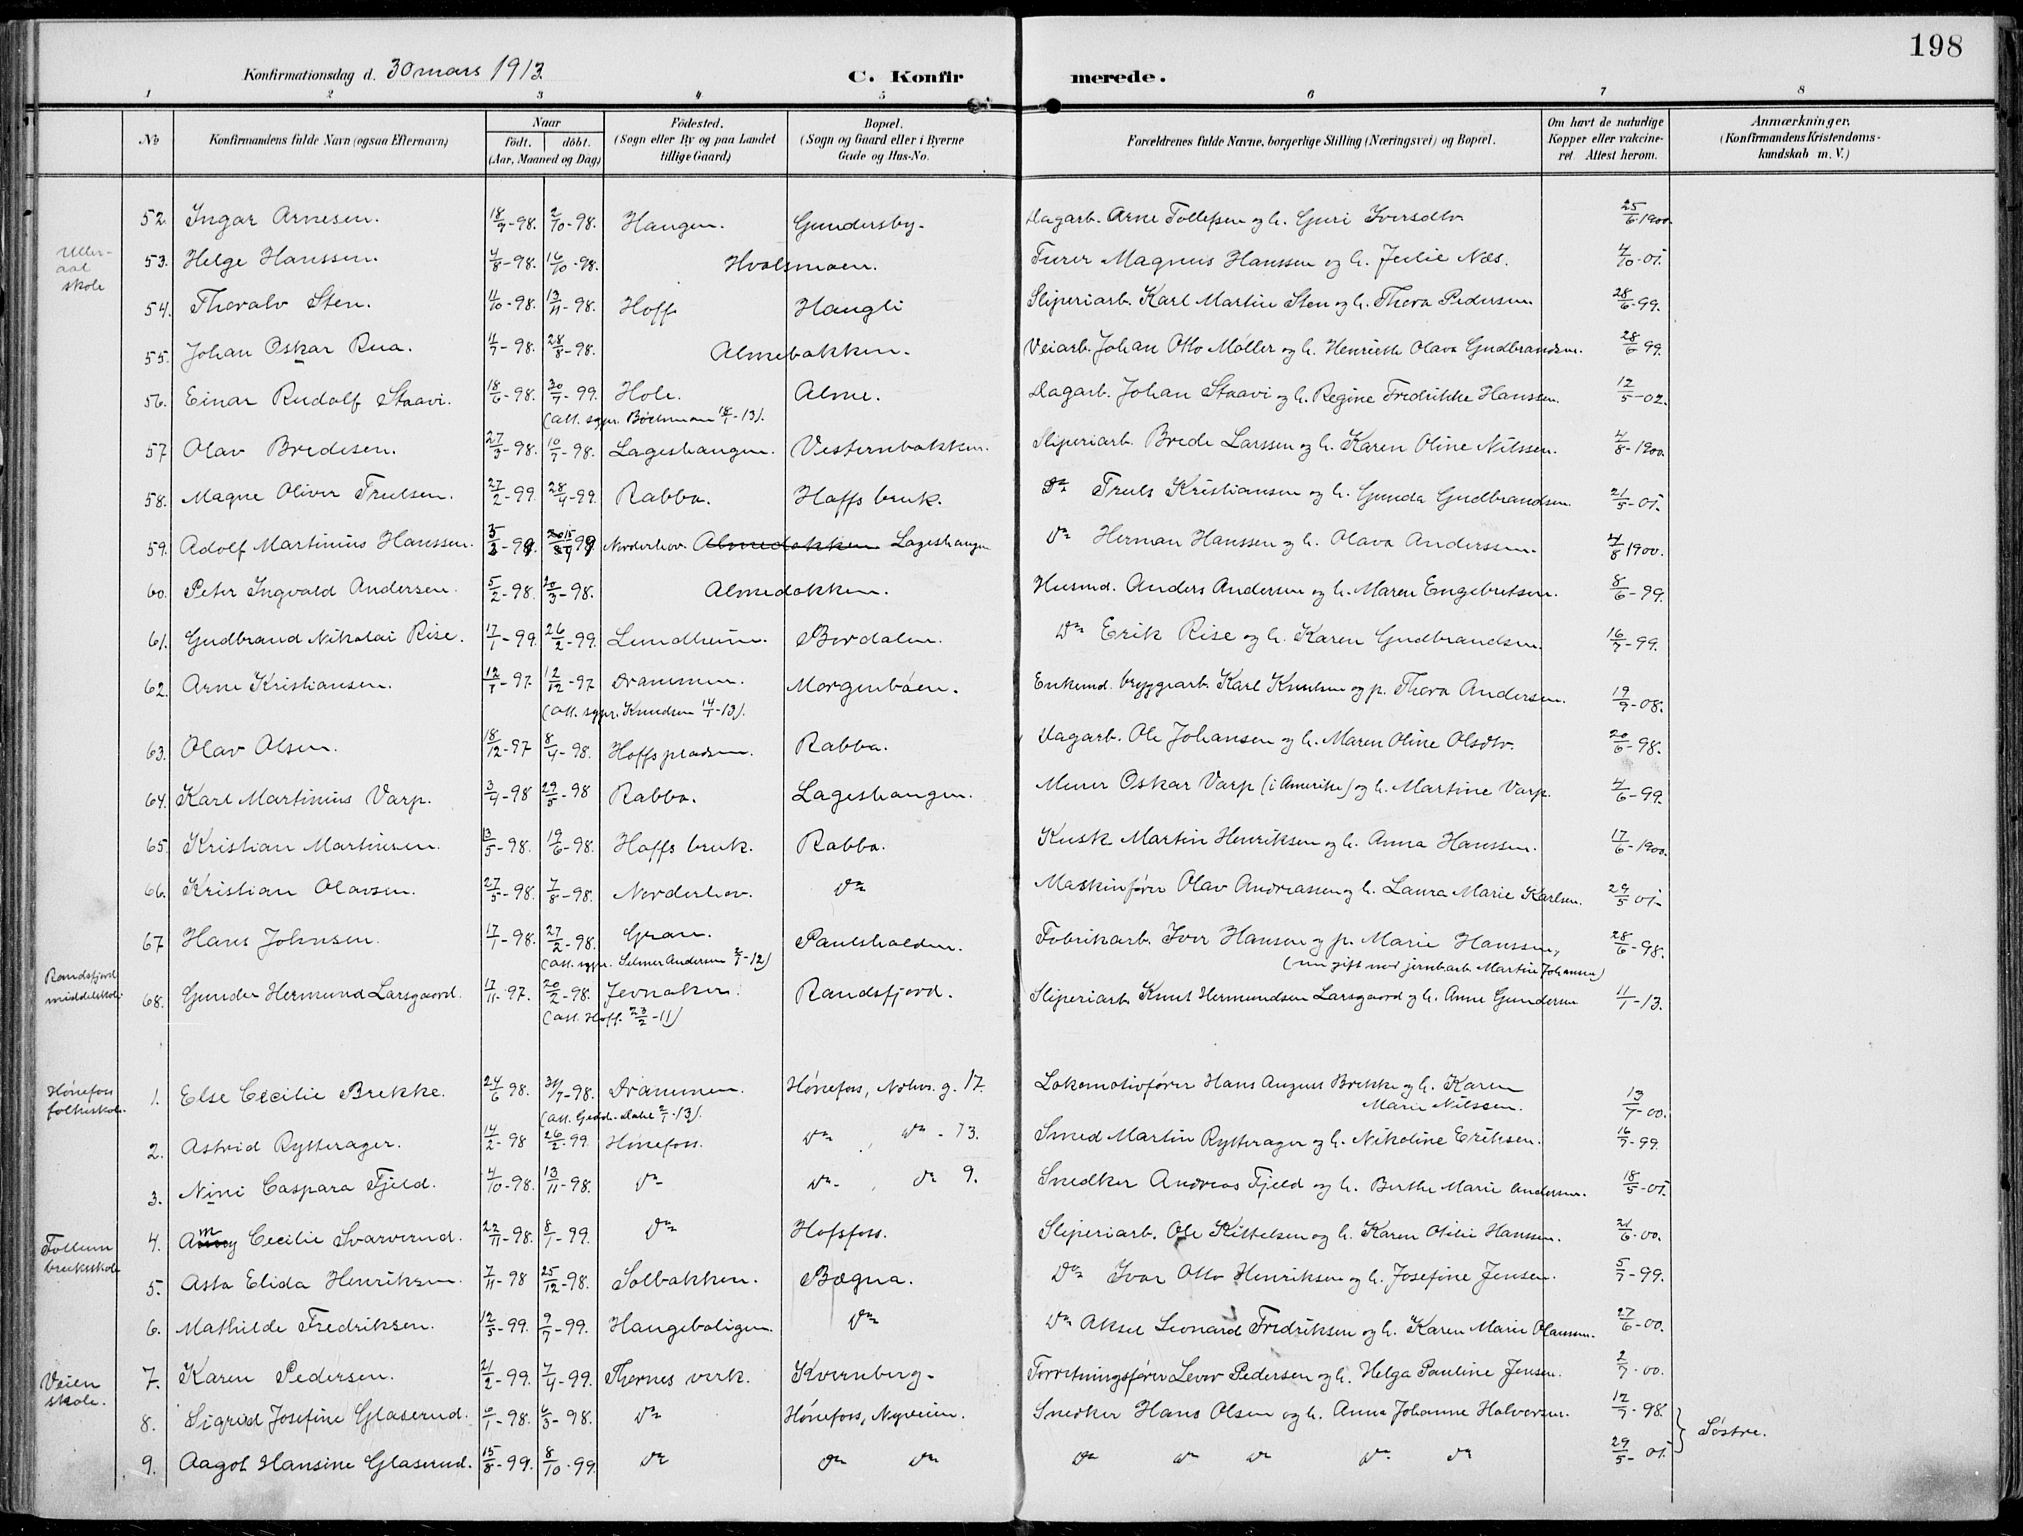 198
Konfirmationsdag d. 30 mars 1913.
C. Konfirmerede.
1 2 3 4 5 6 7 8
No
Konfirmandens fulde Navn (ogsaa Efternavn)
Naar
födt. döbt.
(Aar, Maaned og Dag)
Födested.
(Sogn eller By og paa Landet
tillige Gaard)
Bopæl.
(Sogn og Gaard eller i Byerne
Gade og Hus-No.
Forældrenes fulde Navne, borgerlige Stilling (Næringsvei) og Bopæl.
Om havt de naturlige
Kopper eller vakcine-
ret. Attest herom.
Anmærkninger.
(Konfirmandens Kristendoms-
kundskab m. V.)
52. Ingar Arnesen. 18/9-98. 2/10-98. Haugen. Gundersby. Dagarb. Arne Tollefsen og h. Guri Iversdtr. 25/6 1900.
Uller-
aal
skole
53. Helge Hanssen. 4/8-98. 16/10-98. Hvalsmoen. Furer Magnus Hanssen og h. Julie Næs. 4/10-01.
54. Thoralv Sten. 4/10-98. 13/11-98. Hoff. Haugli Sliperiarb. Karl Martin Sten og h. Thora Pedersen. 28/6-99.
55. Johan Oskar Rua. 11/7-98. 28/8-98. Almebakken. Veiarb. Johan Otto Møller og h. Henriette Olava Gudbrandsen. 28/6 99.
56. Einar Rudolf Staavi. 18/6-98. 30/7-99. Hole. Alme. Dagarb. Johan Staavi og h. Regine Fredrikke Hanssen. 12/5-02.
(att. sgpr. Bøchman 18/1-13).
57. Olav Bredesen. 27/3-98. 10/7-98. Lageshaugen. Vesternbakken. Sliperiarb. Brede Larssen og h. Karen Oline Nilssen. 4/8-1900.
58. Magne Oliver Trulsen. 27/2-99. 28/4-99. Rabba. Hoffs bruk. Do Truls Kristiansen og h. Gunda Gudbrandsen. 21/5-01.
59. Adolf Martinius Hanssen. Norderhov. Almebakken Lageshaugen Do Herman Hanssen og h. Olava Anderssen. 4/8 1900.
60. Peter Ingvald Andersen. 5/2-98. 20/3-98. Almebakken. Husmd. Anders Andersen og h. Maren Engebretsen. 8/6-99.
61. Gudbrand Nikolai Rise. 17/1-99. 26/2-99. Lundheim. Bordalen. Do Erik Rise og h. Karen Gudbrandsen. 16/7-99.
62. Arne Kristiansen. 12/9-97. 12/12-97. Drammen. Morgenbøen. Enkemd. bryggearb. Karl Knutsen og p. Thora Andersen. 19/9-08.
(att. sgpr. Knudsen 14/1-13).
63. Olav Olsen. 18/12-97 8/4-98. Hoffspladsen. Rabba. Dagarb. Ole Johansen og h. Maren Oline Olsdtr. 20/6-98.
64. Karl Martinius Varp. 3/4-98 29/5-98 Rabba. Lageshaugen. Murer Oskar Varp (i Amerika) og h. Martine Varp. 4/6-99.
65. Kristian Martinsen. 13/5-98. 19/6-98. Hoffs bruk. Rabba. Kusk Martin Henriksen og h. Anna Hanssen. 17/6-1900.
66. Kristian Olavsen. 27/5-98. 7/8-98. Norderhov. Do Maskinfører Olav Andreassen og h. Laura Marie Karlsen. 29/5 01.
67. Hans Johnsen. 17/1-98. 27/2-98. Gran. Paulshalden. Fabrikarb. Iver Hansen og p. Marie Hanssen, 28/6-98.
(att. sgpr. Selmer Andersen 2/1-12) (nu gift med jernbarb. Martin Johansen)
Randsfjord
middelskole
68. Gunder Hermund Larsgaard. 17/11-97. 20/2-98. Jevnaker. Randsfjord. Sliperiarb. Knut Hermundsen Larsgaard og h. Anne Gundersen 11/1-13.
(att. Hoff. 23/2-11)
Hønefoss
folkeskole
1. Else Cecilie Brekke. 24/6 98. 31/7-98. Drammen. Hønefoss, Nohvs. g. 17. Lokomotivfører Hans August Brekke og h. Karen
Marie Nilssen. 13/7-00.
(att. Gedde-Dahl 2/1-13).
2. Astrid Rytterager. 14/2-98 26/2-99 Hønefoss. Do, Do - 73. Smed Martin Rytterager og h. Nikoline Eriksen. 16/7-99.
3. Nini Caspara Fjeld. 4/10-98. 13/11-98. Do Do, Do 9. Snedker Andreas Fjeld og h. Berthe Marie Andersen. 18/5-01.
Follum
bruksskole
4. Amy Cecilie Svarverud. 22/11-98. 8/1-99. Do Hofsfoss. Sliperiarb. Ole Kittelsen og h. Karen Otilie Hanssen. 21/6-00.
5. Asta Elida Henriksen. 7/11-98 25/12-98. Solbakken. Bægna. Do Ivar Otto Henriksen og h. Josefine Jensen. 5/7-99.
6. Mathilde Fredriksen. 12/5-99. 9/7-99. Haugeboligen. Do Do Aksel Leonard Fredriksen og h. Karen Marie Olaussen. 27/6-00.
Veien
skole.
7. Karen Pedersen. 21/2-99. 7/4-99. Thornes verk. Kvernberg. Forretningsfører Lever Pedersen og h. Helga Pauline Jensen. 2/7-00.
8. Sigrid Josefine Glaserud. 6/1-98. 6/3-98. Do Hønefoss, Nyveien. Snedker Hans Olsen og h. Anna Johanne Halvorsen. 12/7-98.
Søstre.
9. Aagot Hansine Glaserud. 15/8-99. 8/10-99. Do Do Do Do Do Do Do Do 29/5-01.